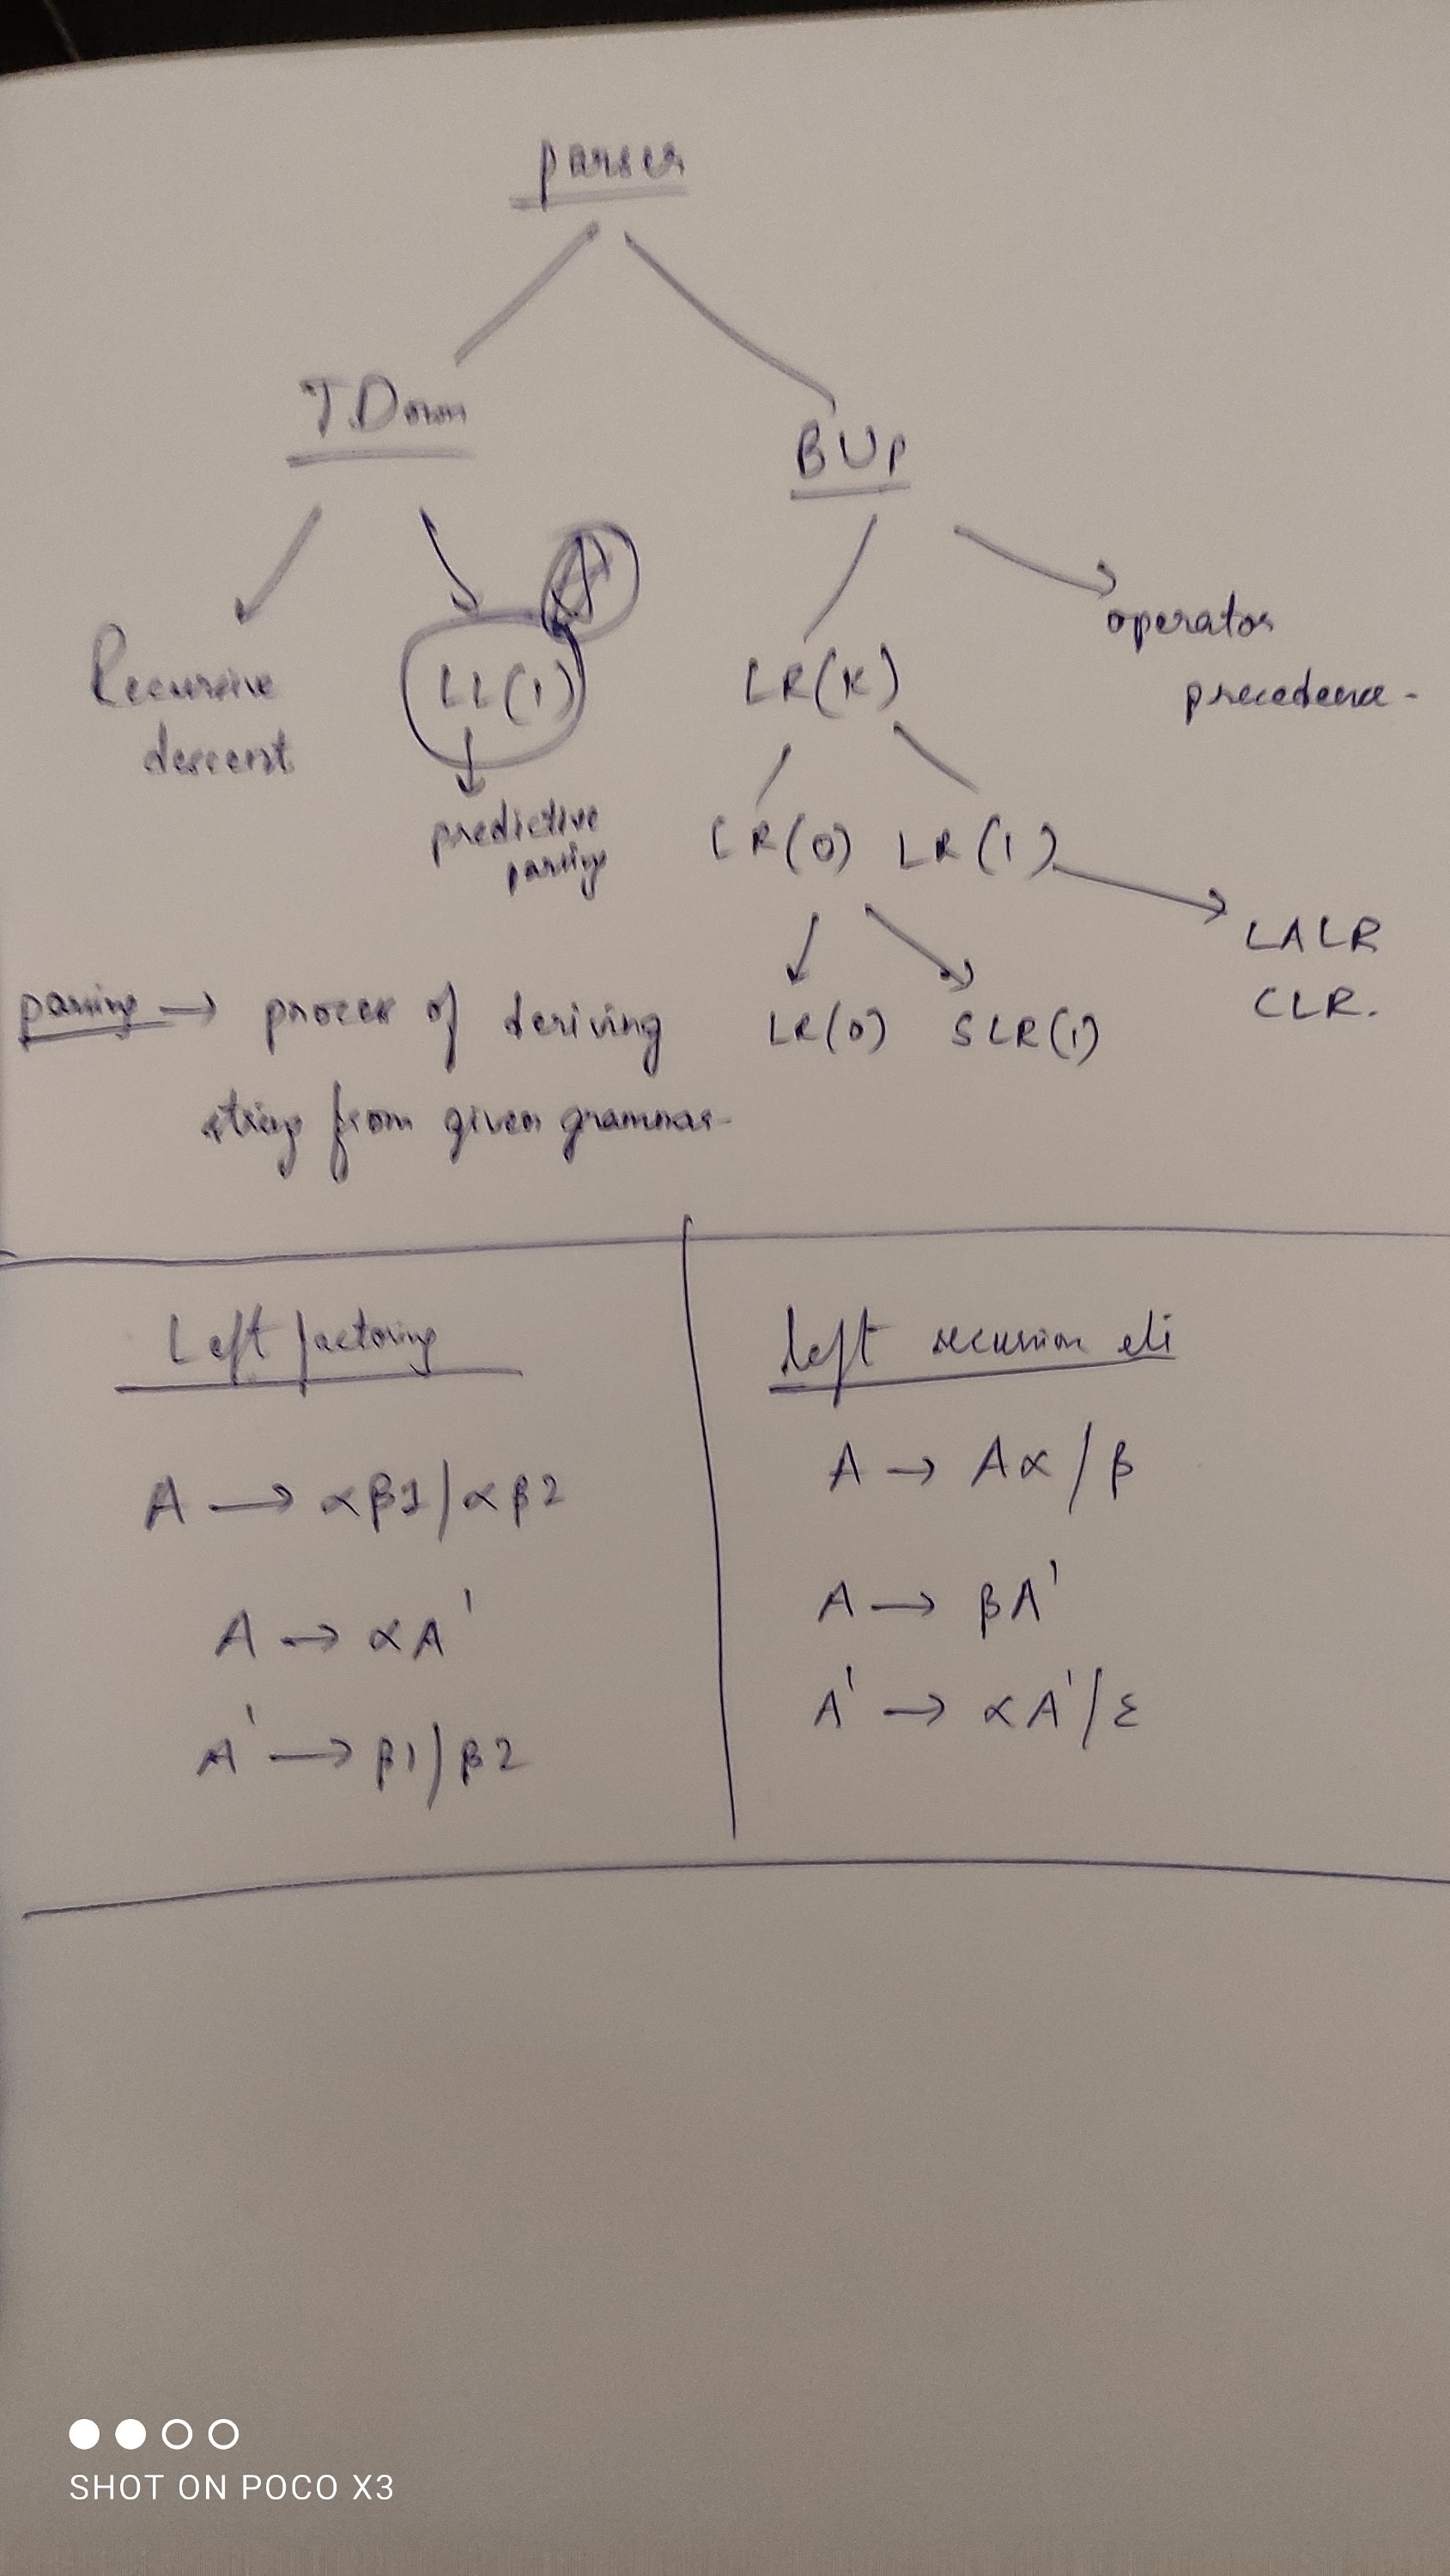 parser
T.Down
BUP
Recursive
descent
LL(1)
predictive
parsing
LR(K)
operator
precedence.
LR(0) LR(1)
LALR
CLR.
LR(0) SLR(1)
parsing → process of deriving
string from given grammar.
Left factoring
A → αβ1/αβ2
A → αA'
A' → β1/β2
left recursion eli
A → Aα/β
A → βA'
A' → αA'/ε
SHOT ON POCO X3